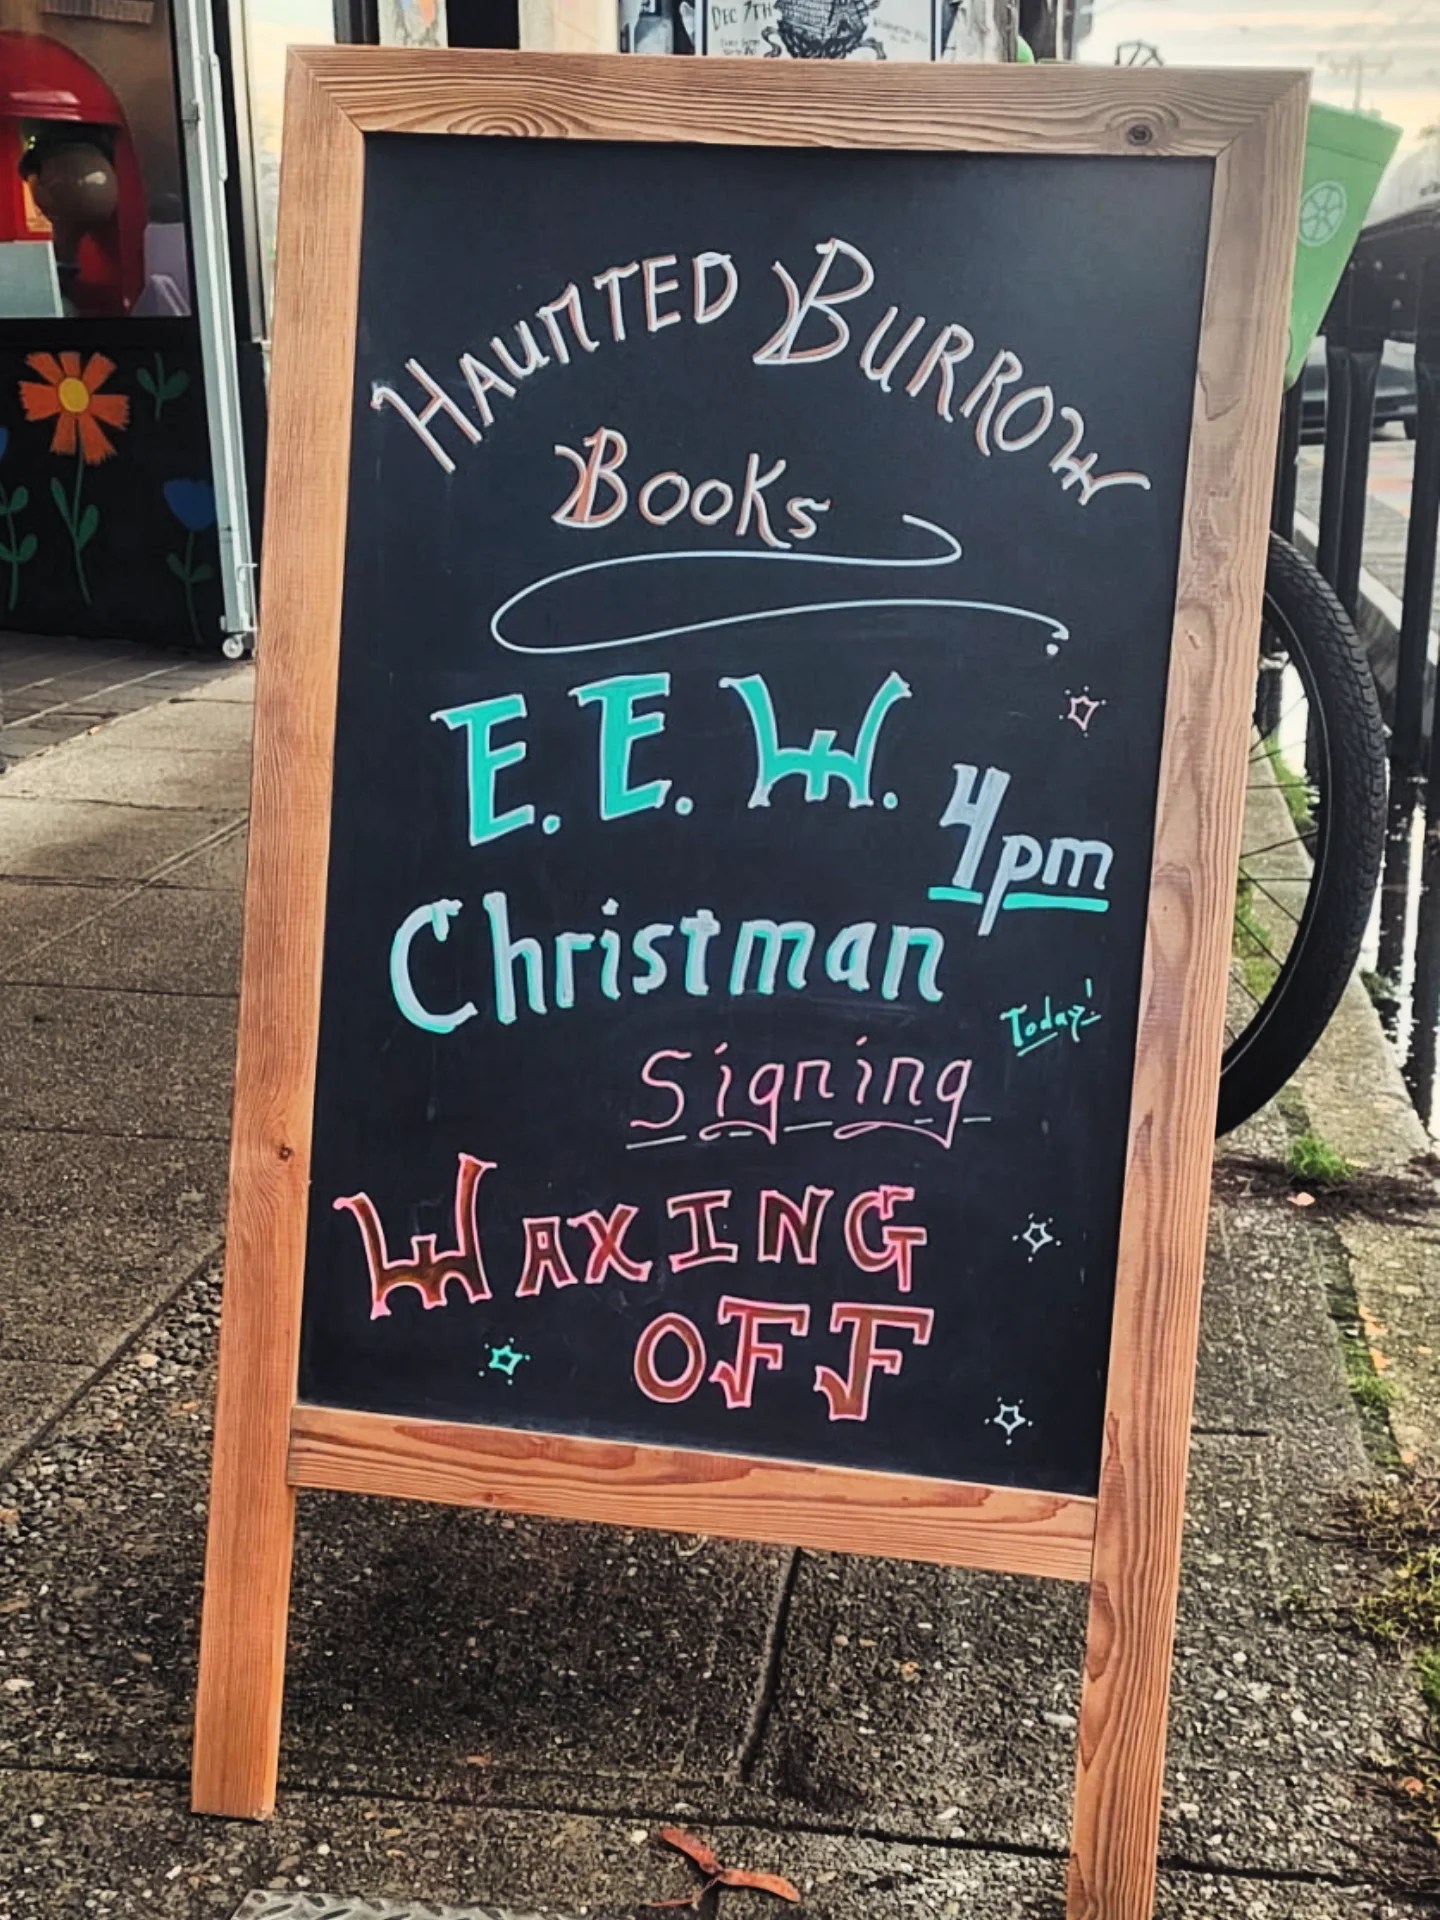 DEC 7TH
HAUNTED BURROW
BOOKS
E. E. W.
4pm
Christman
Today!
Signing
WAXING
OFF